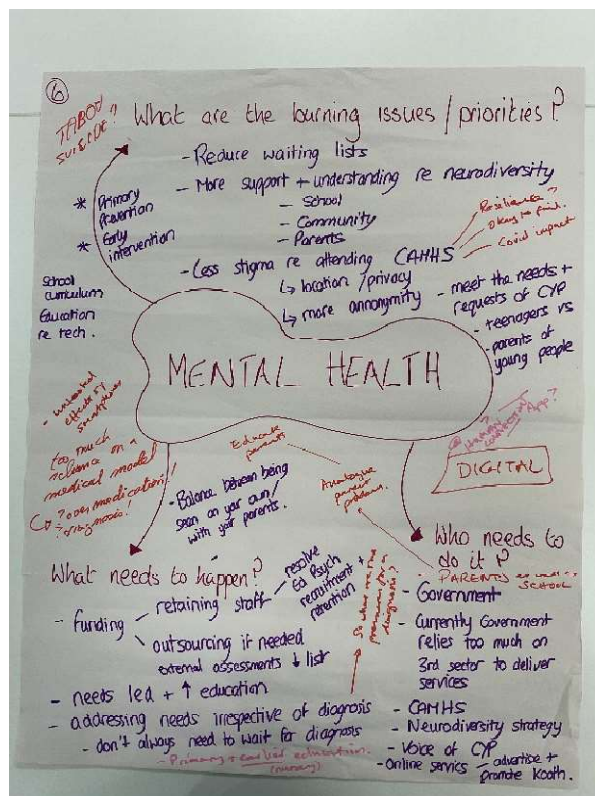 6
TABOO
SUICIDE?
What are the burning issues / priorities?
- Reduce waiting lists
- More support + understanding re neurodiversity
- School
- Community
- Parents
- Less stigma re attending CAMHS
↳ location / privacy
↳ more annonymity
Resilience?
Okay to fail.
Covid impact
- meet the needs +
requests of CYP
- teenagers vs
- parents of
young people
* Primary
Prevention
* Early
intervention
School
curriculum
Education
re tech.
MENTAL HEALTH
effects of
smartphones
too much
reliance on a
medical model
? over medication!
Educate
parents
Analogue
parent
problems.
- Balance between being
seen on your own /
with your parents.
App?
DIGITAL
What needs to happen?
- funding
retaining staff
resolve
Ed Psych
recruitment +
retention
outsourcing if needed
external assessments ↓ list
- needs led + ↑ education
- addressing needs irrespective of diagnosis
- don't always need to wait for diagnosis
- Primary + earlier education.
(nursery)
diagnosis?
Who needs to
do it?
- PARENTS as well as
SCHOOL
- Government
- Currently Government
relies too much on
3rd sector to deliver
services
- CAMHS
- Neurodiversity strategy
- Voice of CYP
- Online servics - advertise +
promote Kooth.